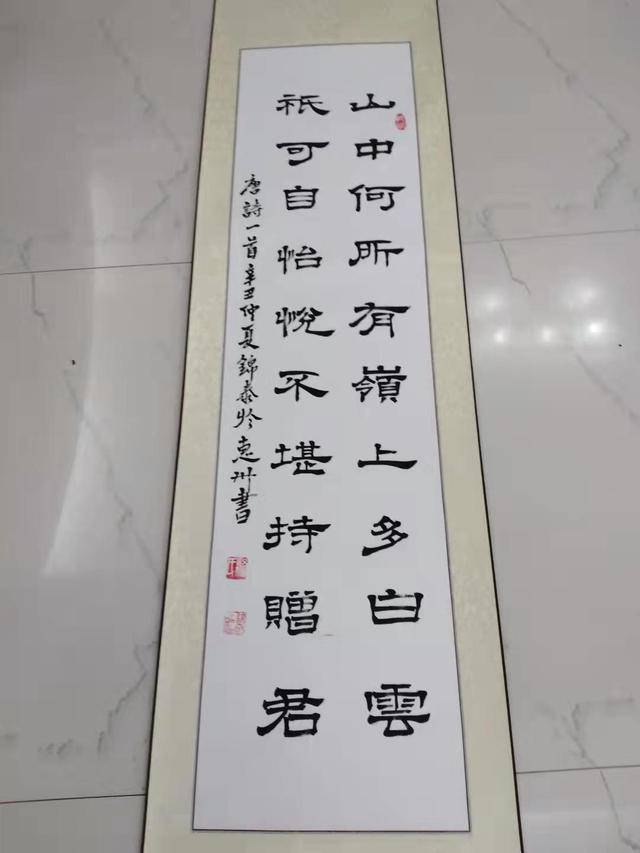 山中何所有嶺上多白雲
祇可自怡悅不堪持贈君
唐詩一首辛丑仲夏錦泰於惠州書